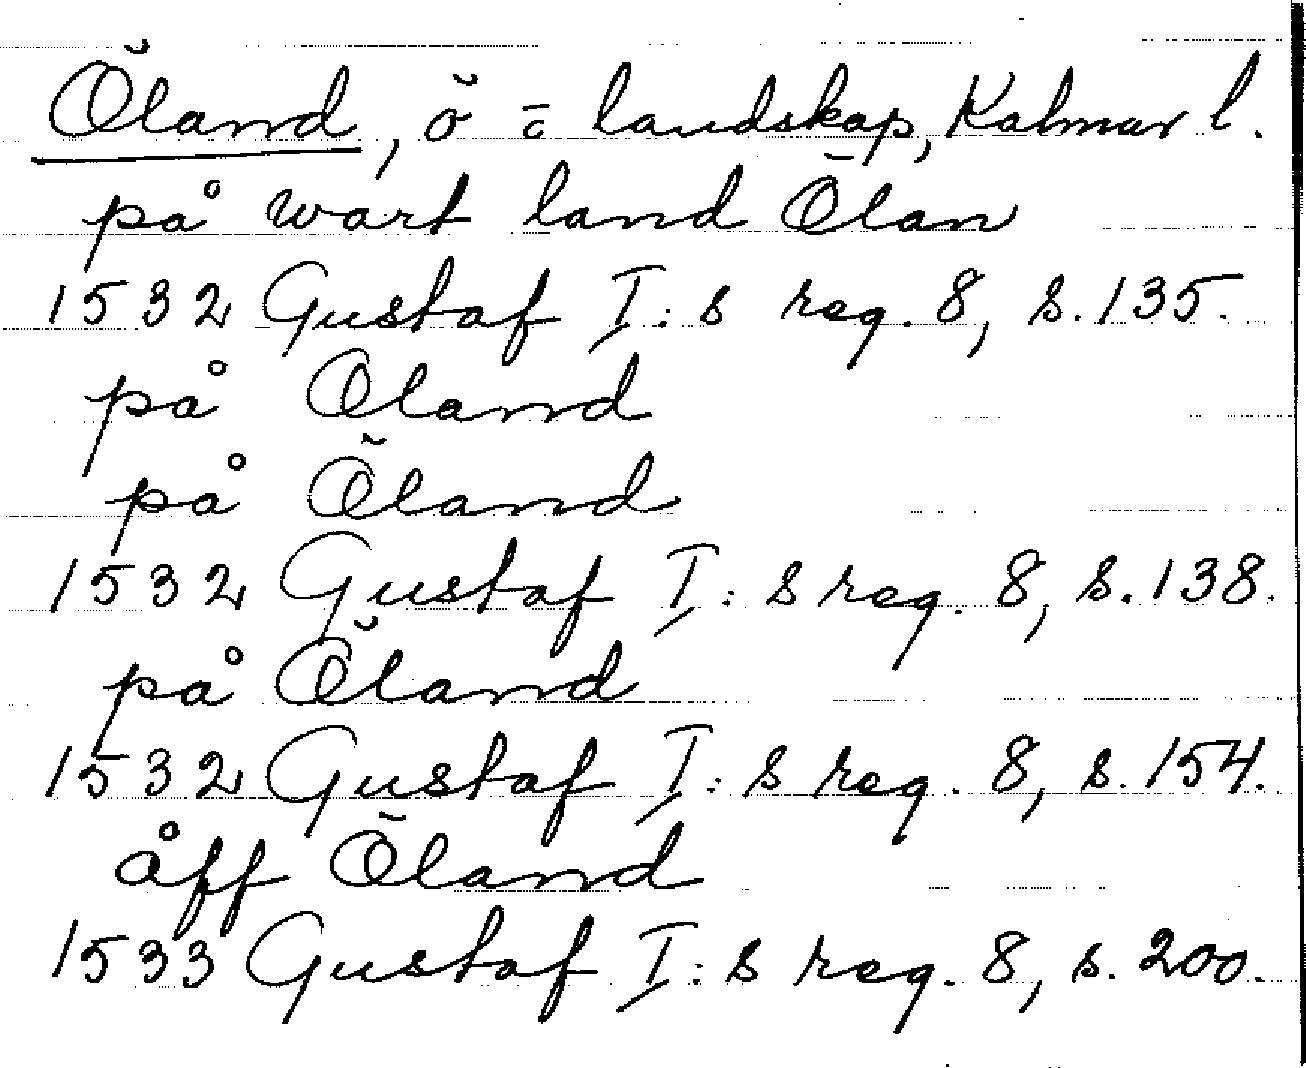 Öland, ö o landskap, Kalmar l.
på wart land Ölan
1532 Gustaf I:s reg. 8, s. 135.
på Oland
på Öland
1532 Gustaf I:s reg. 8, s. 138.
på Öland
1532 Gustaf I:s reg. 8, s. 154.
åff Öland
1533 Gustaf I:s reg. 8, s. 200.